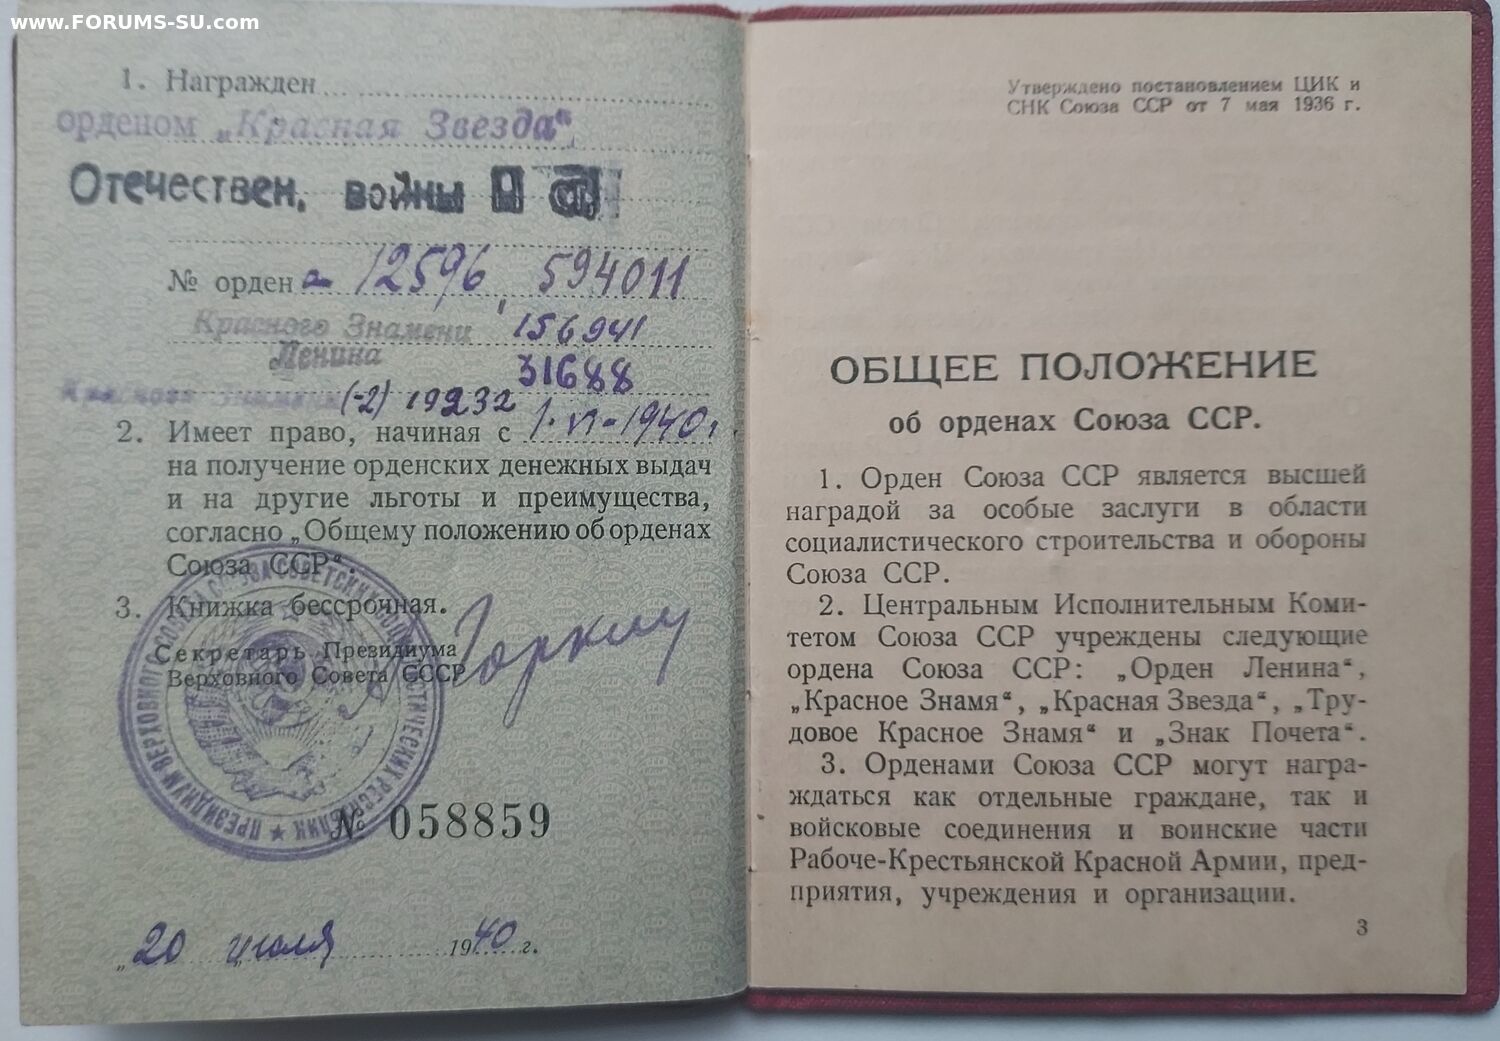 www.FORUMS-SU.com
1. Награжден
орденом „Красная Звезда“,
Отечествен. войны
№ орден а 12596, 594011
Красного Знамени 156941
Ленина 31688
Красного Знамени (-2) 19232
2. Имеет право, начиная с 1.VI-1940г.
на получение орденских денежных выдач
и на другие льготы и преимущества,
согласно „Общему положению об орденах
Союза ССР“.
3. Книжка бессрочная.
Секретарь Президиума
Верховного Совета СССР
Горкин
ПРЕЗИДИУМ ВЕРХОВНОГО СОВЕТА СОЮЗА СОВЕТСКИХ СОЦИАЛИСТИЧЕСКИХ РЕСПУБЛИК ★
№ 058859
„20 июля 1940 г.
Утверждено постановлением ЦИК и
СНК Союза ССР от 7 мая 1936 г.
ОБЩЕЕ ПОЛОЖЕНИЕ
об орденах Союза ССР.
1. Орден Союза ССР является высшей
наградой за особые заслуги в области
социалистического строительства и обороны
Союза ССР.
2. Центральным Исполнительным Коми-
тетом Союза ССР учреждены следующие
ордена Союза ССР: „Орден Ленина“,
„Красное Знамя“, „Красная Звезда“, „Тру-
довое Красное Знамя“ и „Знак Почета“.
3. Орденами Союза ССР могут награ-
ждаться как отдельные граждане, так и
войсковые соединения и воинские части
Рабоче-Крестьянской Красной Армии, пред-
приятия, учреждения и организации.
3